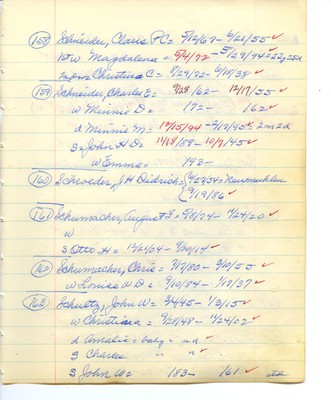 (158) Schneider, Claus PC = 5/12/67 - 6/21/55 ✓
1st w Magdalena = 5/4/72 - 5/29/94 ✓ = 22y 25d
mom Christine C = 8/29/72 - 6/18/38 ✓
(159) Schneider, Charles E = 9/28/62 - 12/17/55 ✓
w Minnie D = 172 - 162 ✓
d Minnie M = 12/15/94 - 2/17/95 ✓ = 2m 2d
s = John H D = 11/18/89 - 10/9/45 ✓
w Emma = 193 -
(160) Schroeder, J H Diedrich = 6/27/54 = Neumuhlen
9/19/86 ✓
(161) Schumacher, August F = 9/8/34 - 11/24/20 ✓
w
s Otto H = 12/21/64 - 9/30/14 ✓
(162) Schumacher, Chris = 7/17/80 - 3/10/55 ✓
w Louise W D = 9/10/84 - 1/17/37 ✓
(163) Schultz, John W = 3/4/45 - 1/3/15 ✓
w Christiana = 9/28/48 - 11/24/02 ✓
d Amalie = baby = nd ✓
s Charles " " ✓
s John W = 183 - 161 ✓